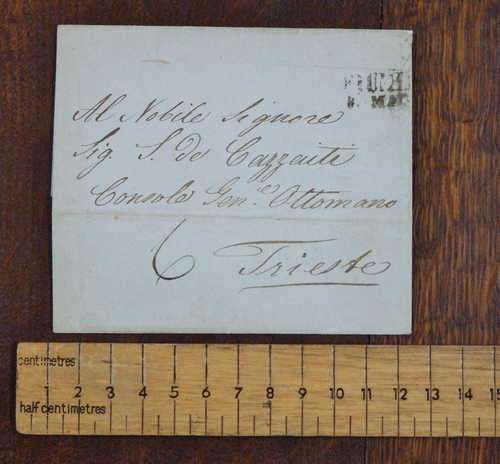 FIUME
MAR
Al Nobile Signore
Sig. S. de Cazzaiti
Console Gen.le Ottomano
6 Trieste
centimetres
1 2 3 4 5 6 7 8 9 10 11 12 13 14 15
half centimetres